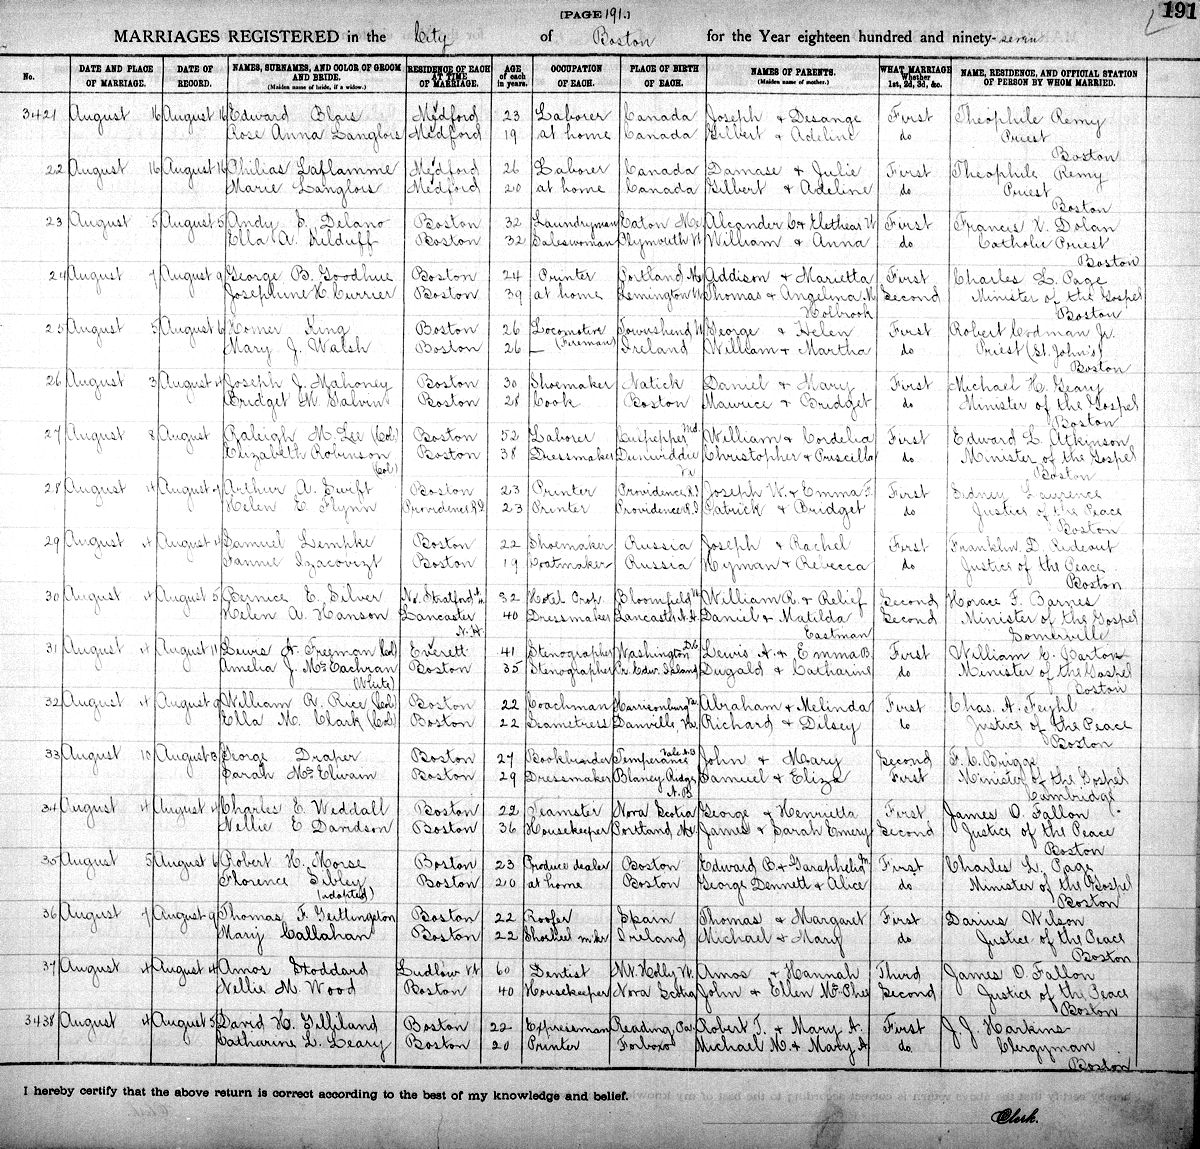 [PAGE 191.]
191
MARRIAGES REGISTERED in the City of Boston for the Year eighteen hundred and ninety-seven
No. DATE AND PLACE OF MARRIAGE. DATE OF RECORD. NAMES, SURNAMES, AND COLOR OF GROOM AND BRIDE. (Maiden name of bride, if a widow.) RESIDENCE OF EACH AT TIME OF MARRIAGE. AGE of each in years. OCCUPATION OF EACH. PLACE OF BIRTH OF EACH. NAMES OF PARENTS. (Maiden name of mother.) WHAT MARRIAGE Whether 1st, 2d, 3d, &c. NAME, RESIDENCE, AND OFFICIAL STATION OF PERSON BY WHOM MARRIED.
3421 August 16 August 16 Edward Blais Medford 23 Laborer Canada Joseph & Desange First Theophile Remy
Rose Anna Langlois Medford 19 at home Canada Gilbert & Adeline do Priest
Boston
22 August 16 August 16 Philias Laflamme Medford 26 Laborer Canada Damase & Julie First Theophile Remy
Marie Langlois Medford 20 at home Canada Gilbert & Adeline do Priest
Boston
23 August 5 August 5 Andy E. Delano Boston 32 Laundryman Eaton Me. First Francis X. Dolan
Ella A. Kilduff Boston 32 Saleswoman Plymouth William & Anna do Catholic Priest
Boston
24 August 7 August 9 George B. Goodhue Boston 24 Printer Portland Me Addison & Marietta First Charles L. Page
Josephine Currier Boston 39 at home Lemington Vt Thomas & Angelina M. Second Minister of the Gospel
Holbrook Boston
25 August 5 August 6 Homer King Boston 26 Locomotive Townshend Vt George & Helen First Robert Codman Jr.
Mary J. Walsh Boston 26 — (Fireman) Ireland William & Martha do Priest (St. John's)
Boston
26 August 3 August 4 Joseph J. Mahoney Boston 30 Shoemaker Natick Daniel & Mary First Michael H. Geary
Bridget M. Galvin Boston 28 Cook Boston Maurice & Bridget do Minister of the Gospel
Boston
27 August 8 August Raleigh M. Lee (Col) Boston 52 Laborer Culpepper Md. William & Cordelia First Edward L. Atkinson
Elizabeth Robinson Boston 38 Dressmaker Dinwiddie Christopher & Priscilla do Minister of the Gospel
(Col) Va Boston
28 August 4 August Arthur A. Swift Boston 23 Printer Providence R.I. Joseph W. & Emma F. First Sidney Lawrence
Helen E. Flynn Providence R.I. 23 Printer Providence R.I. Patrick & Bridget do Justice of the Peace
Boston
29 August 4 August 4 Samuel Lempke Boston 22 Shoemaker Russia Joseph & Rachel First Franklin D. Rideout
Fannie Boston 19 Coatmaker Russia Hyman & Rebecca do Justice of the Peace
Boston
30 August 4 August 5 Bernice E. Silver No. Stratford 32 Hotel Bloomfield Vt William R. & Relief Second Horace F. Barnes
Helen A. Hanson Lancaster 40 Dressmaker Lancaster N.H. Daniel & Matilda Second Minister of the Gospel
N.H. Eastman Somerville
31 August 4 August 11 Lewis A. Freeman (Col) Everett 41 Stenographer Washington D.C. Lewis A. & Emma B. First William
Amelia J. McEachran Boston 35 Stenographer Pr. Edw. Island Dugald & Catharine do Minister of the Gospel
(White) Boston
32 August 4 August 9 William R. Rice (Col) Boston 22 Coachman Harrisonburg Va. Abraham & Melinda First Chas. A. Feyhl
Ella M. Clark (Col) Boston 22 Seamstress Danville, Va. Richard & Dilsey do Justice of the Peace
Boston
33 August 10 August 13 George Draper Boston 27 Bookbinder Temperance Vale N.B John & Mary Second F. C. Briggs
Sarah McElwain Boston 29 Dressmaker Blaney Ridge Samuel & Eliza First Minister of the Gospel
N.B. Cambridge
34 August 4 August 4 Charles E. Weddall Boston 22 Teamster Nova Scotia George & Henrietta First James O. Fallon
Nellie E Davidson Boston 36 Housekeeper Portland Me. James & Sarah Emery Second Justice of the Peace
Boston
35 August 5 August 6 Robert H. Morse Boston 23 Produce dealer Boston Edward B. & First Charles L. Page
Florence Sibley Boston 20 at home Boston George Dennett & Alice do Minister of the Gospel
(adopted) Boston
36 August 7 August 9 Thomas F. Boston 22 Roofer Spain Thomas & Margaret First Darius Wilson
Mary Callahan Boston 22 Ireland Michael & Mary do Justice of the Peace
Boston
37 August 4 August 4 Amos Stoddard Ludlow Vt 60 Dentist Mt. Holly Vt. Amos & Hannah Third James O. Fallon
Nellie M. Wood Boston 40 Housekeeper Nova Scotia John & Ellen McPhee Second Justice of the Peace
Boston
3438 August 4 August 5 David H. Gilliland Boston 22 Expressman Reading, Pa. Robert T. & Mary A. First J. J. Harkins
Catharine L. Leary Boston 20 Printer Foxboro Michael M. & Mary A. do Clergyman
Boston
I hereby certify that the above return is correct according to the best of my knowledge and belief.
Clerk.